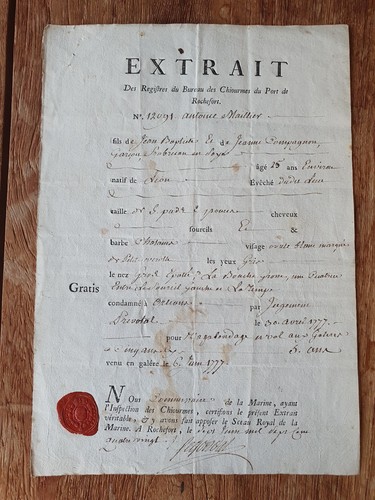 EXTRAIT
Des Regîtres du Bureau des Chiourmes du Port de
Rochefort.
N.º 12091 Antoine Maillier
fils de Jean Baptiste Et de Jeanne Compagnon
garçon
âgé 25 ans Environ
natif de Lion Évêché dudit Lieu
taille de 5 pieds 2 pouces cheveux
sourcils Et &
barbe Chatains visage ovale blanc marqué
de petite verole les yeux Gris
le nez gros La Bouche grosse, une Cicatrice
Gratis
condamné à Orleans par Jugement
Prevotal le 30 avril 1777.
pour Vagabondage et vol aux Galeres
Cinq ans 5. ans
venu en galère le 6 Juin 1777
NOUS Commissaire de la Marine, ayant
l'Inspection des Chiourmes, certifions le présent Extrait
véritable, & y avons fait apposer le Sceau Royal de la
Marine. A Rochefort, le mil sept cent
quatre vingt